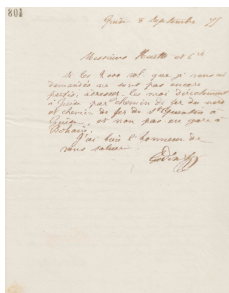 801
Guise 8 Septembre 75
Messieurs Huette et Cie
Si les 2000 kil. que je vous ai
demandés ne sont pas encore
partis, adressez-les moi directement
à Guise par chemin de fer du nord
et chemin de fer de St Quentin à
Guise, et non pas en gare à
Bohain.
J'ai bien l'honneur de
vous saluer.